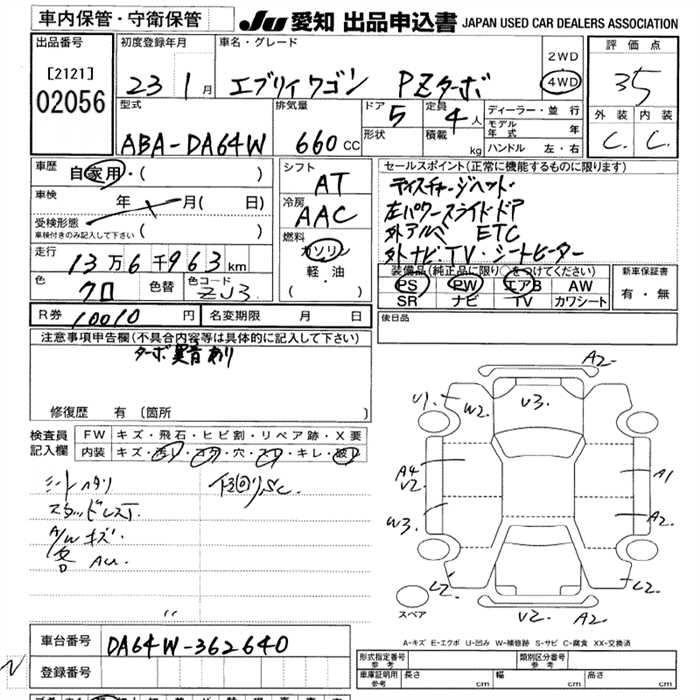 車内保管・守衛保管
JU 愛知 出品申込書 JAPAN USED CAR DEALERS ASSOCIATION
出品番号
[2121]
02056
初度登録年月
23 1月
車名・グレード
エブリィワゴン PZターボ
2WD
4WD
評価点
3.5
外装 内装
C. C.
型式
ABA-DA64W
排気量
660 CC
ドア 5
形状
定員 4人
積載 kg
ディーラー・並行
モデル年式 年
ハンドル 左・右
車歴 自家用・( )
車検 年 月( 日)
受検形態
車検付きのみ記入して下さい ( )
走行 13万6千963km
色 クロ 色替 色コード ZJ3
シフト AT
冷房 AAC
燃料 ガソリン
軽・油
( )
セールスポイント(正常に機能するものに限ります)
ディスチャージヘット・
左パワースライドドア
外アルミ ETC
外ナビ・TV・シートヒーター
装備品(純正品に限り○をつけてください)
PS PW エアB AW
SR ナビ TV カワシート
新車保証書
有・無
R券 10010円 名変期限 月 日
後日品
注意事項申告欄(不具合内容等は具体的に記入して下さい)
ターボ異音あり
修復歴 有 〔箇所 〕
検査員記入欄
FW キズ・飛石・ヒビ割・リペア跡・X要
内装 キズ・汚レ・コゲ・穴・スレ・キレ・破レ
シートヘタリ 下回りS.C.
スタッドレス
A/Wキズ
各 AU.
〃
A2
U1 W2 U3
A4
U2
A1
W3 A2
U2 A2 U2 A2
スペア
A-キズ E-エクボ U-凹み W-補修跡 S-サビ C-腐食 XX-交換済
車台番号 DA64W-362640
登録番号
N
形式指定番号 参考
類別区分番号 参考
車庫証明用 参考 長さ cm 幅 cm 高さ cm